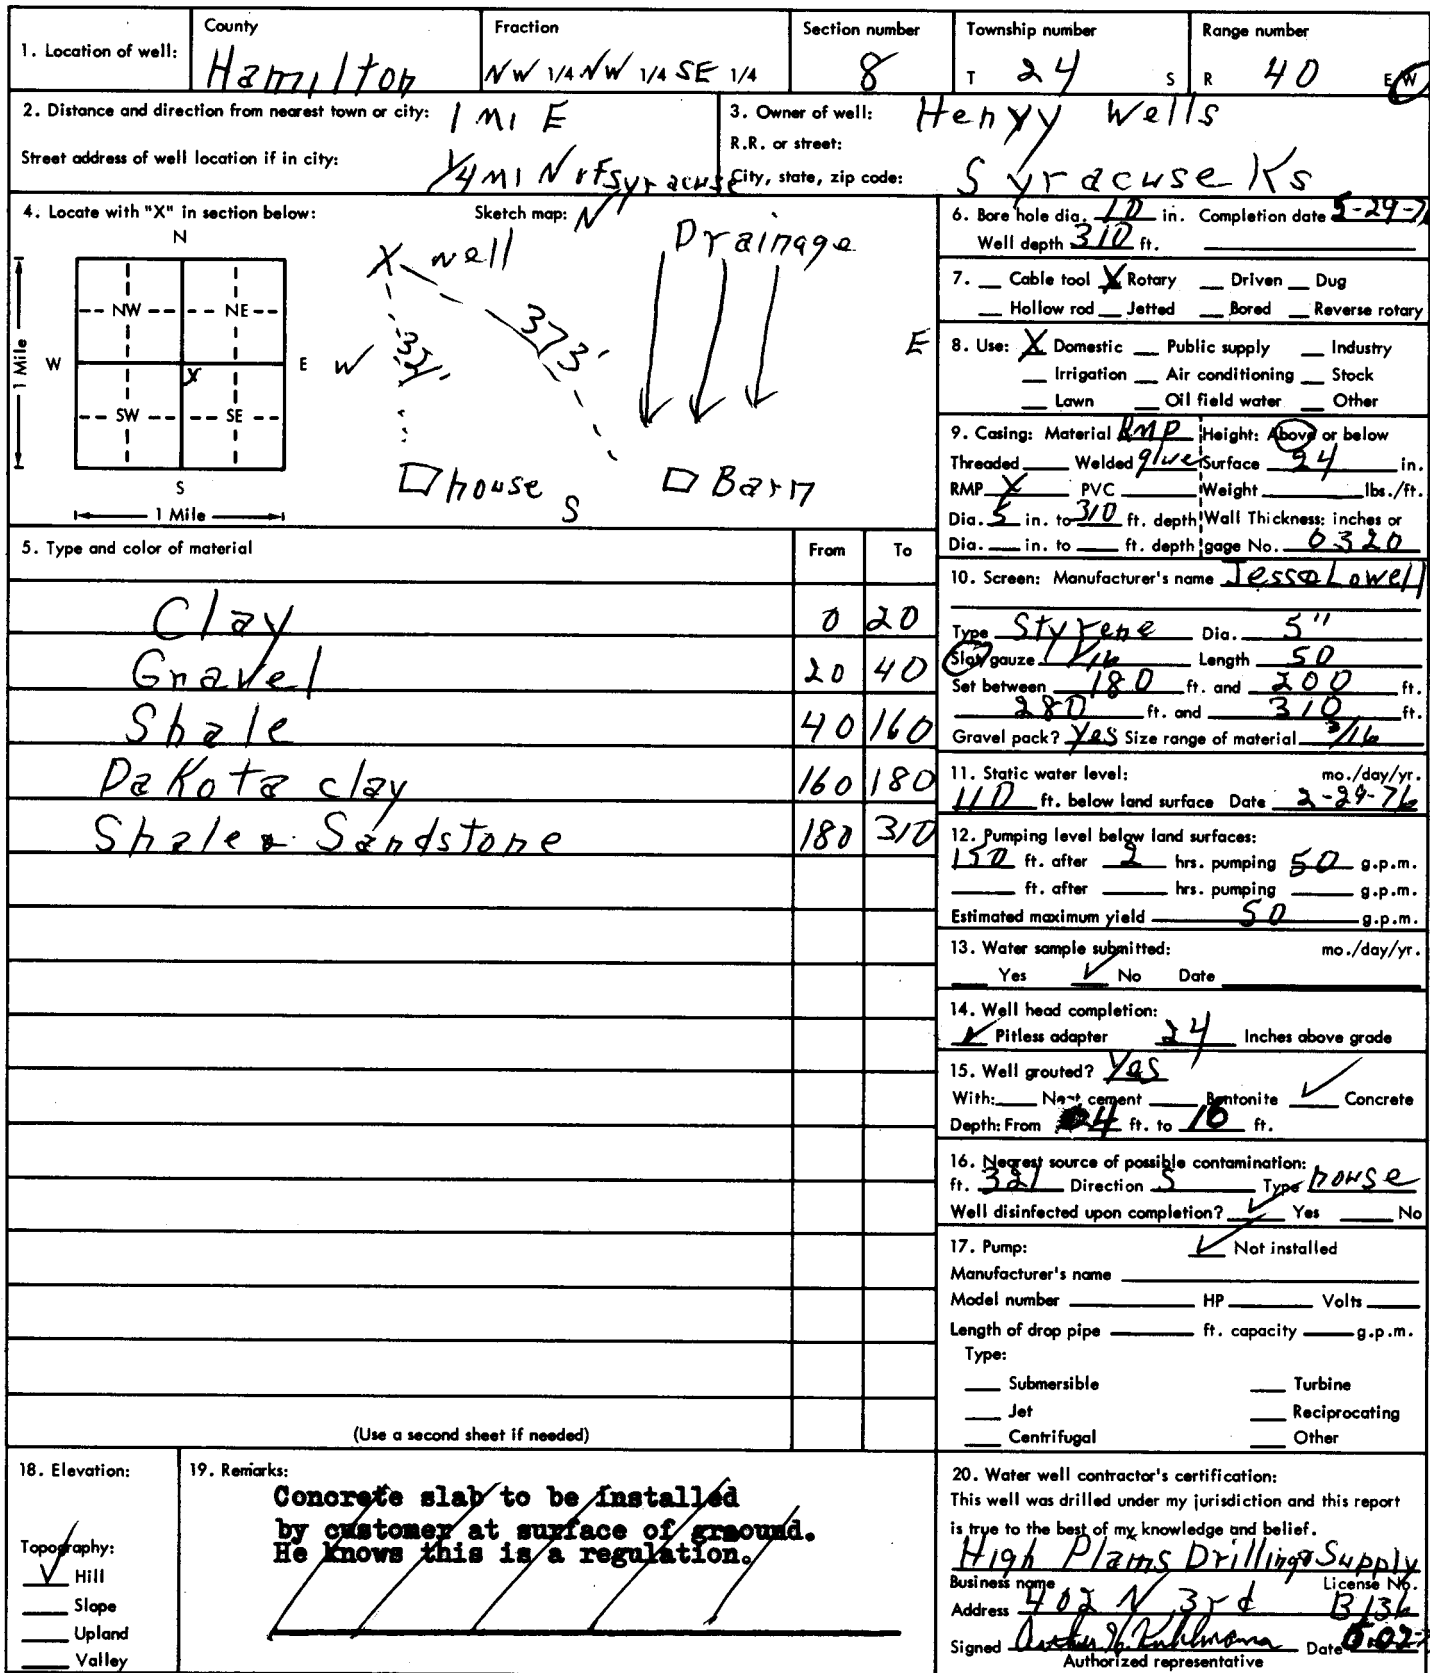 County Fraction Section number Township number Range number
1. Location of well: Hamilton NW 1/4 NW 1/4 SE 1/4 8 T 24 S R 40 E W
2. Distance and direction from nearest town or city: 1 MI E
Street address of well location if in city: 1/4 MI N of Syracuse
3. Owner of well: Henyy Wells
R.R. or street:
City, state, zip code: Syracuse Ks
4. Locate with "X" in section below: Sketch map: N
N
X well Drainage
NW NE
1 Mile W E W 352' 373' E
X
SW SE
house Barn
S S
1 Mile
5. Type and color of material From To
Clay 0 20
Gravel 20 40
Shale 40 160
Dakota clay 160 180
Shale & Sandstone 180 310
(Use a second sheet if needed)
6. Bore hole dia. 10 in. Completion date 5-29-7
Well depth 310 ft.
7. Cable tool X Rotary Driven Dug
Hollow rod Jetted Bored Reverse rotary
8. Use: X Domestic Public supply Industry
Irrigation Air conditioning Stock
Lawn Oil field water Other
9. Casing: Material RMP Height: Above or below
Threaded Welded glue Surface 24 in.
RMP X PVC Weight lbs./ft.
Dia. 5 in. to 310 ft. depth Wall Thickness: inches or
Dia. in. to ft. depth gage No. 0320
10. Screen: Manufacturer's name Jessa Lowell
Type Styrene Dia. 5"
Slot/gauze 1/16 Length 50
Set between 180 ft. and 200 ft.
280 ft. and 310 ft.
Gravel pack? Yes Size range of material 3/16
11. Static water level: mo./day/yr.
110 ft. below land surface Date 2-29-76
12. Pumping level below land surfaces:
150 ft. after 2 hrs. pumping 50 g.p.m.
ft. after hrs. pumping g.p.m.
Estimated maximum yield 50 g.p.m.
13. Water sample submitted: mo./day/yr.
Yes ✓ No Date
14. Well head completion:
✓ Pitless adapter 24 Inches above grade
15. Well grouted? Yes
With: Neat cement Bentonite ✓ Concrete
Depth: From 4 ft. to 10 ft.
16. Nearest source of possible contamination:
ft. 321 Direction S Type house
Well disinfected upon completion? ✓ Yes No
17. Pump: ✓ Not installed
Manufacturer's name
Model number HP Volts
Length of drop pipe ft. capacity g.p.m.
Type:
Submersible Turbine
Jet Reciprocating
Centrifugal Other
18. Elevation:
Topography:
✓ Hill
Slope
Upland
Valley
19. Remarks:
Concrete slab to be installed
by customer at surface of graound.
He knows this is a regulation.
20. Water well contractor's certification:
This well was drilled under my jurisdiction and this report
is true to the best of my knowledge and belief.
High Plains Drilling & Supply
Business name License No.
Address 402 N 3rd B136
Signed Date
Authorized representative